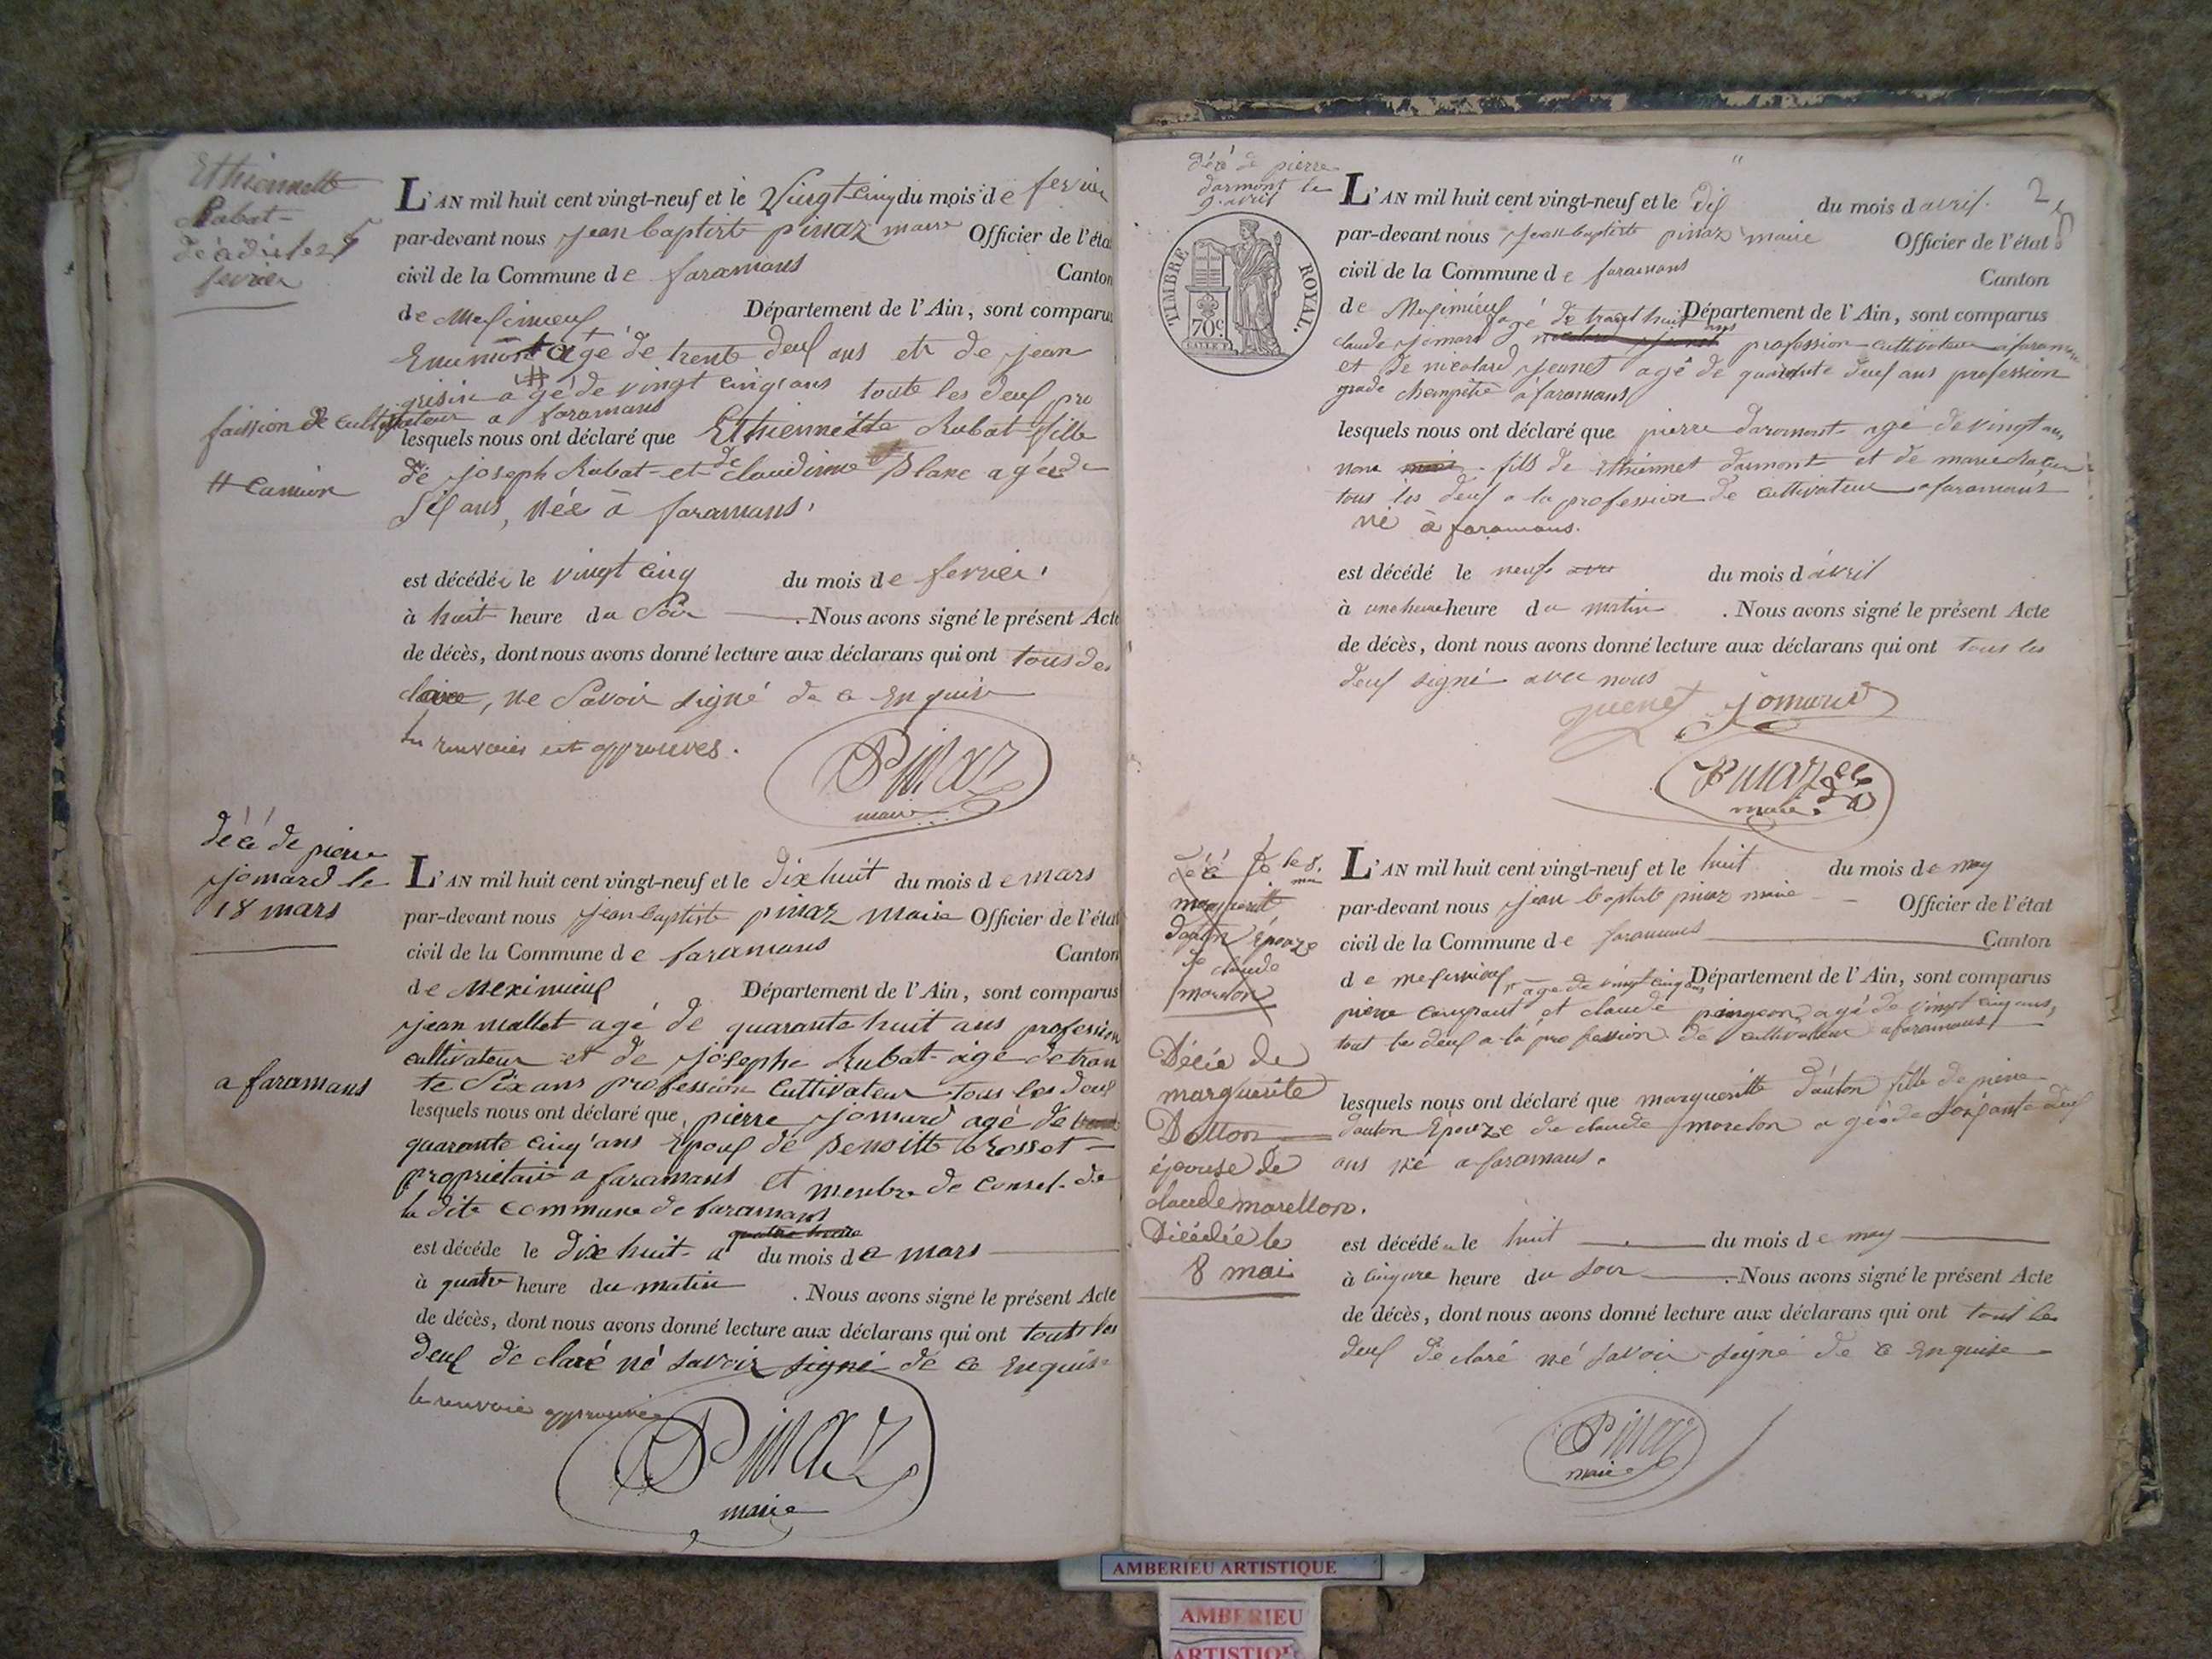 Ethiennette
Rubat
février
L'AN mil huit cent vingt-neuf et le Vingt cinq du mois de fevrier
par-devant nous jean baptiste pinaz maire Officier de l'état
civil de la Commune de faramans Canton
de Meximieux Département de l'Ain, sont comparus
agé de trente deux ans et de jean
grisin agé de vingt cinq ans toute les deux pro
faission de cultivateur a faramans
lesquels nous ont déclaré que Ethiennette Rubat fille
de joseph Rubat et de claudine Blanc agée de
six ans, née à faramans,
est décédée le vingt cinq du mois de fevrier
à huit heure du Soir Nous avons signé le présent Acte
de décès, dont nous avons donné lecture aux déclarans qui ont tous de
claire, ne Savoir signé de ce enquis
les renvois est approuvés.
Pinaz
maire
décé de pierre
jomard le
18 mars
L'AN mil huit cent vingt-neuf et le dix huit du mois de mars
par-devant nous jean baptiste pinaz maire Officier de l'état
civil de la Commune de faramans Canton
de Meximieux Département de l'Ain, sont comparus
jean mallet agé de quarante huit ans profession
cultivateur et de josephe Rubat age de tran
te Six ans profession cultivateur tous les deux
a faramans
lesquels nous ont déclaré que pierre jomard agé de
quarante cinq ans Epoux de Benoitte brosset
propriétaire a faramans et menbre de consel de
la dite commune de faramans
quatre heure
est décéde le dix huit a du mois de mars
à quatre heure du matin . Nous avons signé le présent Acte
de décès, dont nous avons donné lecture aux déclarans qui ont touts les
deux declaré né savoir signé de ce enquis
le renvoie approuvée
Pinaz
maire
décé de pierre
darmont le
9 avril
TIMBRE ROYAL.
70c
2
L'AN mil huit cent vingt-neuf et le dix du mois d avril
par-devant nous jean baptiste pinaz maire Officier de l'état
civil de la Commune de faramans Canton
de Meximieux Département de l'Ain, sont comparus
claude jomard agé de trante huit ans profession cultivateur a faramans
et de nicolard jeunet agé de quarante deux ans profession
grade champetre a faramans
lesquels nous ont déclaré que pierre daromont agé de vingt ans
non fils de ethiennet darmont et de marie
tous les deux a la profession de cultivateur a faramans
né à faramans.
est décédé le neuf du mois d avril
à une heure heure du matin . Nous avons signé le présent Acte
de décès, dont nous avons donné lecture aux déclarans qui ont tous les
deux signé avec nous
jomard
Pinaz
maire
décé de le 8 mai
marguerite
dauton Epouze
de claude
morelon
Décée de
marguerite
Dotton
épouse de
claude morellon.
Décédée le
8 mai
L'AN mil huit cent vingt-neuf et le huit du mois de may
par-devant nous jean baptiste pinaz maire Officier de l'état
civil de la Commune de faramans Canton
de meximieux age de vingt cinq ans Département de l'Ain, sont comparus
pierre et claude pingeon agé de vingt cinq ans,
tout les deux a la profession de cultivateur a faramans
lesquels nous ont déclaré que margueritte dauton fille de pierre
dauton Epouze de claude morelon agée de Soixante deux
ans né a faramans.
est décédée le huit du mois de may
à heure du soir Nous avons signé le présent Acte
de décès, dont nous avons donné lecture aux déclarans qui ont tout les
deux declaré né savoir signé de ce enquise
Pinaz
maire
AMBERIEU ARTISTIQUE
AMBERIEU
ARTISTIQUE